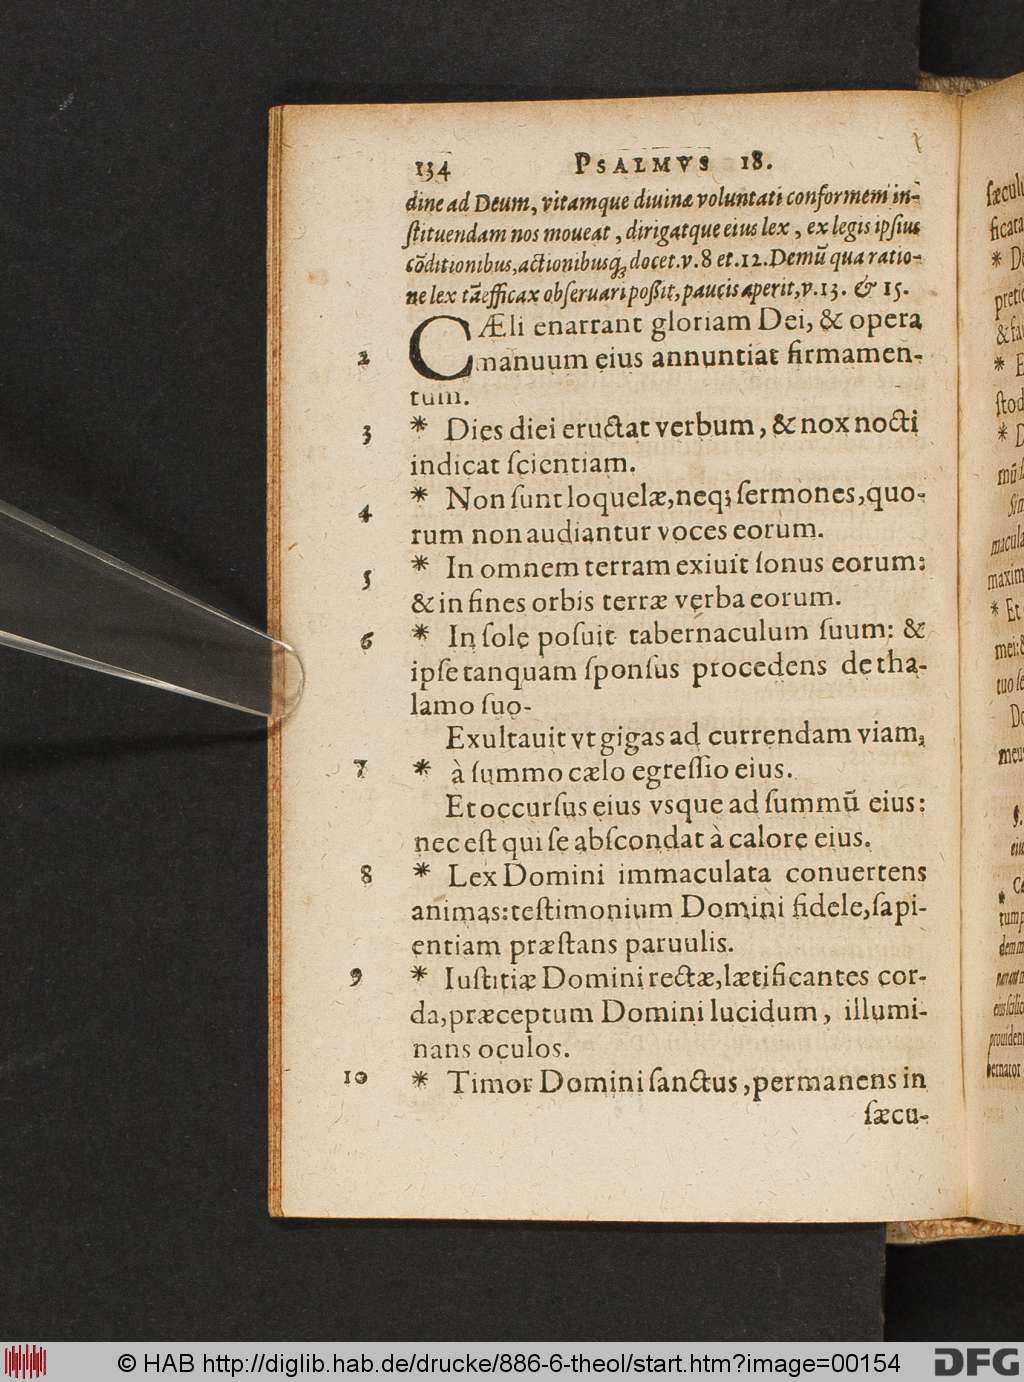 134 PSALMVS 18.
dine ad Deum, vitamque diuinæ voluntati conformem in-
ſtituendam nos moueat, dirigatque eius lex, ex legis ipſius
cõditionibus, actionibusq; docet. v. 8 et. 12. Demũ qua ratio-
ne lex tã efficax obſeruari poſſit, paucis aperit, v. 13. & 15.
CÆli enarrant gloriam Dei, & opera
2 manuum eius annuntiat firmamen-
tum.
3 * Dies diei eructat verbum, & nox nocti
indicat ſcientiam.
4 * Non ſunt loquelæ, neq; ſermones, quo-
rum non audiantur voces eorum.
5 * In omnem terram exiuit ſonus eorum:
& in fines orbis terræ verba eorum.
6 * In ſole poſuit tabernaculum ſuum: &
ipſe tanquam ſponſus procedens de tha-
lamo ſuo-
Exultauit vt gigas ad currendam viam,
7 * à ſummo cælo egreſſio eius.
Et occurſus eius vsque ad ſummũ eius:
nec eſt qui ſe abſcondat à calore eius.
8 * Lex Domini immaculata conuertens
animas: teſtimonium Domini fidele, ſapi-
entiam præſtans paruulis.
9 * Iuſtitiæ Domini rectæ, lætificantes cor-
da, præceptum Domini lucidum, illumi-
nans oculos.
10 * Timor Domini ſanctus, permanens in
ſæcu-
© HAB http://diglib.hab.de/drucke/886-6-theol/start.htm?image=00154
DFG